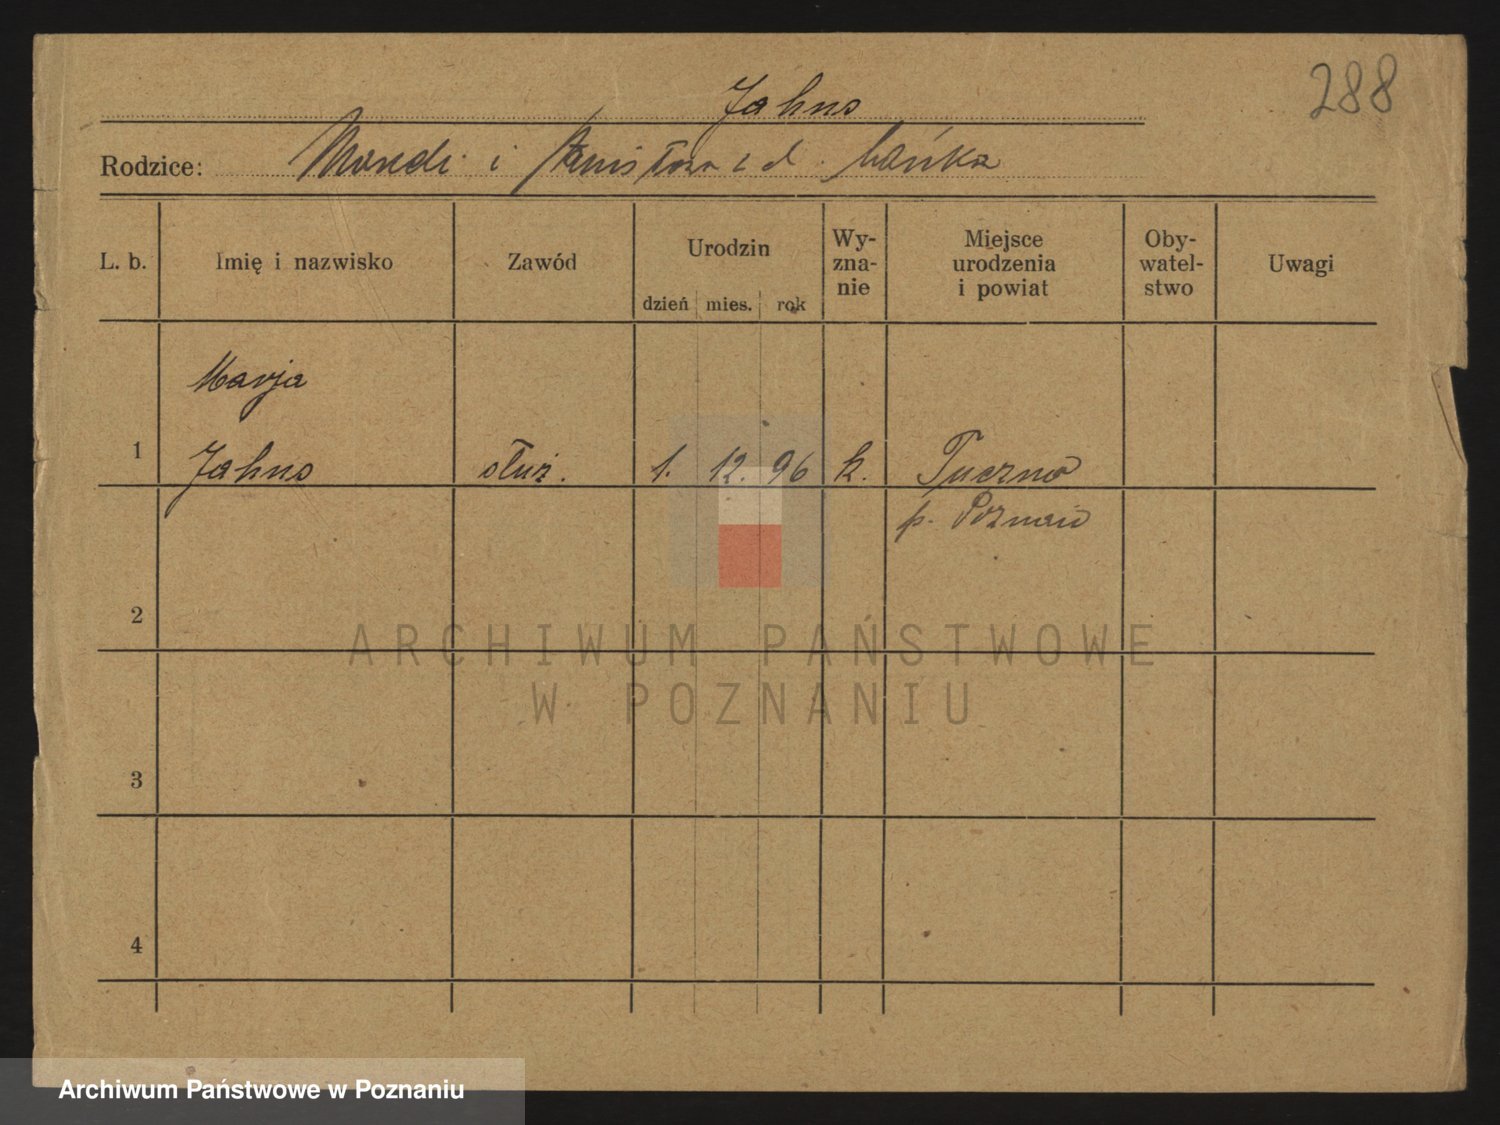 288
Jahns
Rodzice: i z d. Bańka
L. b. Imię i nazwisko Zawód Urodzin Wy-zna-nie Miejsce urodzenia i powiat Oby-watel-stwo Uwagi
dzień mies. rok
Marja
1 Jahns służ. 1. 12. 96 k. Tuczno
p. Poznań
2
ARCHIWUM PAŃSTWOWE
W POZNANIU
3
4
Archiwum Państwowe w Poznaniu